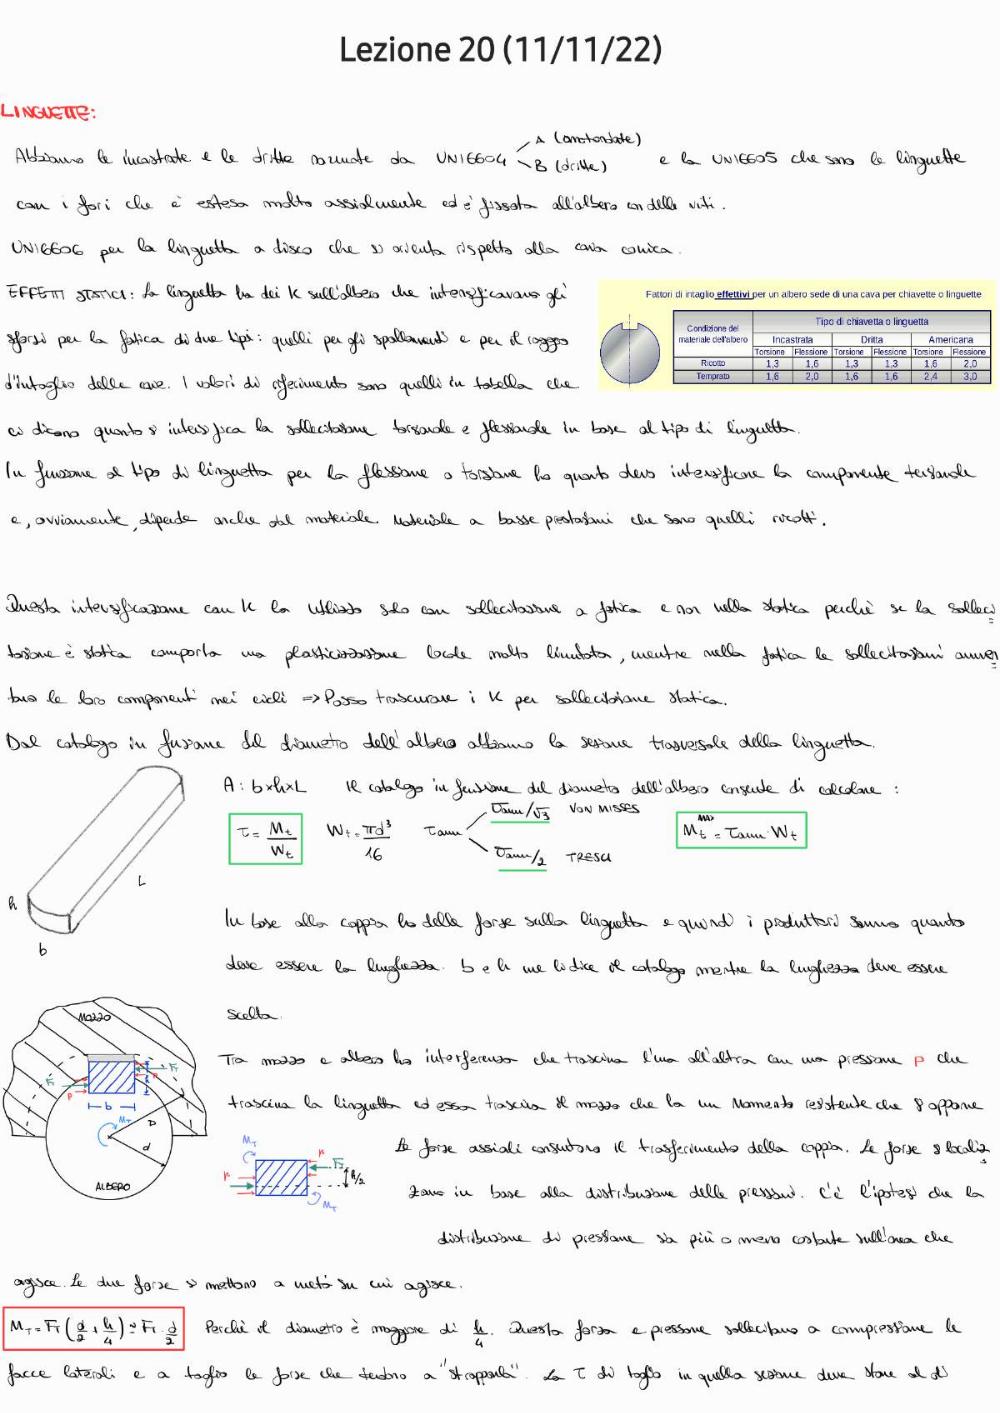 Lezione 20 (11/11/22)
LINGUETTE:
Abbiamo le incastrate e le dritte normate da UNI6604 A (arrotondate) B (dritte) e la UNI6605 che sono le linguette
con i fori che è estesa molto assialmente ed è fissata all'albero con delle viti.
UNI6606 per la linguetta a disco che si orienta rispetto alla cava conica.
EFFETTI STATICI: La linguetta ha dei K sull'albero che intensificavano gli
sforzi per la fatica di due tipi: quelli per gli spallamenti e per il raggio
d'intaglio delle cave. I valori di riferimento sono quelli in tabella che
ci dicono quanto si intensifica la sollecitazione torsionale e flessionale in base al tipo di linguetta.
Fattori di intaglio effettivi per un albero sede di una cava per chiavette o linguette
Condizione del materiale dell'albero
Tipo di chiavetta o linguetta
Incastrata Dritta Americana
Torsione Flessione Torsione Flessione Torsione Flessione
Ricotto 1,3 1,6 1,3 1,3 1,6 2,0
Temprato 1,6 2,0 1,6 1,6 2,4 3,0
In funzione al tipo di linguetta per la flessione o torsione ho quanto devo intensificare la componente tensionale
e, ovviamente, dipende anche dal materiale. Materiale a basse prestazioni che sono quelli ricotti.
Questa intensificazione con K la utilizzo solo con sollecitazione a fatica e non nella statica perchè se la solleci
tazione è statica comporta una plasticizzazione locale molto limitata, mentre nella fatica le sollecitazioni aumen
tano le loro componenti nei cicli => Posso trascurare i K per sollecitazione statica.
Dal catalogo in funzione del diametro dell'albero abbiamo la sezione trasversale della linguetta.
h
b
L
A: b×h×L Il catalogo in funzione del diametro dell'albero consente di calcolare:
τ = Mt/Wt Wt = πd³/16 τamm σamm/√3 VON MISSES σamm/2 TRESCA Mt max = τamm · Wt
In base alla coppia ho delle forze sulla linguetta e quindi i produttori sanno quanto
deve essere la lunghezza. b e h me lo dice il catalogo mentre la lunghezza deve essere
scelta.
MOZZO
Ft
p
b
h
Mt
D
d
ALBERO
Tra mozzo e albero ho interferenza che trascina l'una all'altra con una pressione p che
trascina la linguetta ed essa trascina il mozzo che ha un Momento resistente che si oppone
MT
p
Ft
h/2
MT
Le forze assiali consentono il trasferimento della coppia. Le forze si localiz
zano in base alla distribuzione delle pressioni. C'è l'ipotesi che la
distribuzione di pressione sia più o meno costante sull'area che
agisce. Le due forze si mettono a metà su cui agisce.
MT = FT (d/2 + h/4) ≃ FT · d/2 Perchè il diametro è maggiore di h/4. Questa forza e pressione sollecitano a compressione le
facce laterali e a taglio le forze che tendono a "strapparla". La τ di taglio in quella sezione deve stare al di